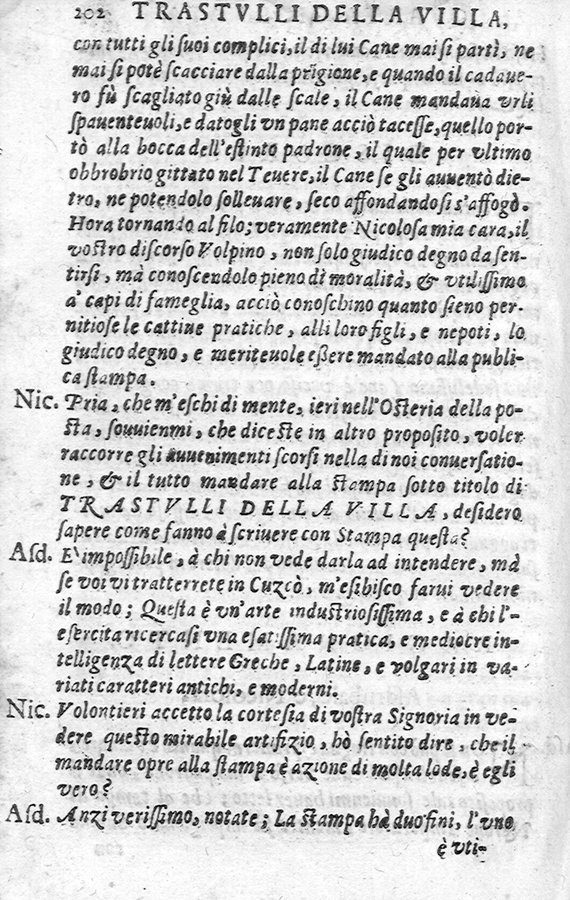 202 TRASTVLLI DELLA VILLA,
con tutti gli ſuoi complici, il di lui Cane mai si partì, ne
mai si potè scacciare dalla prigione, e quando il cadaue-
ro fù ſcagliato giù dalle ſcale, il Cane mandaua vrli
ſpauenteuoli, e datogli vn pane acciò taceſſe, quello por-
tò alla bocca dell'eſtinto padrone, il quale per vltimo
obbrobrio gittato nel Teuere, il Cane ſe gli auuentò die-
tro, ne potendolo ſolleuare, ſeco affondandoſi s'affogò.
Hora tornando al filo; veramente Nicoloſa mia cara, il
voſtro diſcorſo Volpino, non ſolo giudico degno da ſen-
tirſi, mà conoſcendolo pieno di moralità, & vtiliſſimo
a' capi di fameglia, acciò conoſchino quanto ſieno per-
nitioſe le cattiue pratiche, alli loro figli, e nepoti, lo
giudico degno, e meriteuole eſſere mandato alla publi-
ca ſtampa.
Nic. Pria, che m'eſchi di mente, ieri nell'Oſteria della po-
ſta, ſouuienmi, che diceſte in altro propoſito, voler
raccorre gli auuenimenti ſcorſi nella di noi conuerſatio-
ne, & il tutto mandare alla ſtampa ſotto titolo di
TRASTVLLI DELLA VILLA, deſidero
ſapere come fanno à ſcriuere con Stampa queſta?
Aſd. E' impoſſibile, à chi non vede darla ad intendere, mà
ſe voi vi tratterrete in Cuzcò, m'eſibiſco farui vedere
il modo; Queſta è vn'arte induſtrioſiſſima, e à chi l'-
eſercita ricercaſi vna eſatiſſima pratica, e mediocre in-
telligenza di lettere Greche, Latine, e volgari in va-
riati caratteri antichi, e moderni.
Nic. Volontieri accetto la corteſia di voſtra Signoria in ve-
dere queſto mirabile artifizio, hò ſentito dire, che il
mandare opre alla ſtampa è azione di molta lode, è egli
vero?
Aſd. Anzi veriſſimo, notate; La ſtampa hà duo fini, l'vno
è vti-